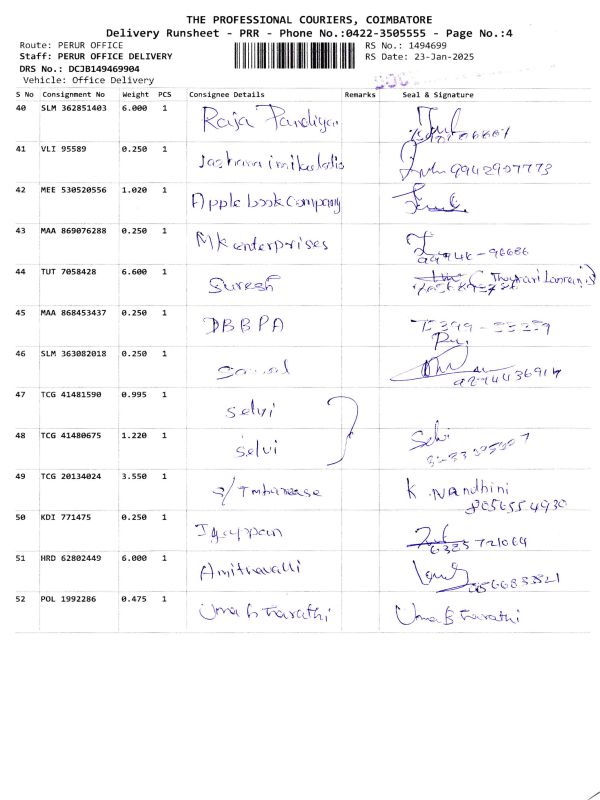 THE PROFESSIONAL COURIERS, COIMBATORE
Delivery Runsheet - PRR - Phone No.:0422-3505555 - Page No.:4
Route: PERUR OFFICE
RS No.: 1494699
Staff: PERUR OFFICE DELIVERY
RS Date: 23-Jan-2025
DRS No.: DCJB149469904
Vehicle: Office Delivery
S No Consignment No Weight PCS Consignee Details Remarks Seal & Signature
40 SLM 362851403 6.000 1 Raja Pandiyan
41 VLI 95589 0.250 1 9942907773
42 MEE 530520556 1.020 1 Apple book Company
43 MAA 869076288 0.250 1 Mk enterprises
44 TUT 7058428 6.600 1 Suresh
45 MAA 868453437 0.250 1 DBBPA
46 SLM 363082018 0.250 1
47 TCG 41481590 0.995 1 selvi
48 TCG 41480675 1.220 1 selvi Selvi
49 TCG 20134024 3.550 1 K. Nandhini
8056554930
50 KDI 771475 0.250 1 Iyappan
6383721064
51 HRD 62802449 6.000 1 Amithavalli
52 POL 1992286 0.475 1 Uma Bharathi Uma Bharathi